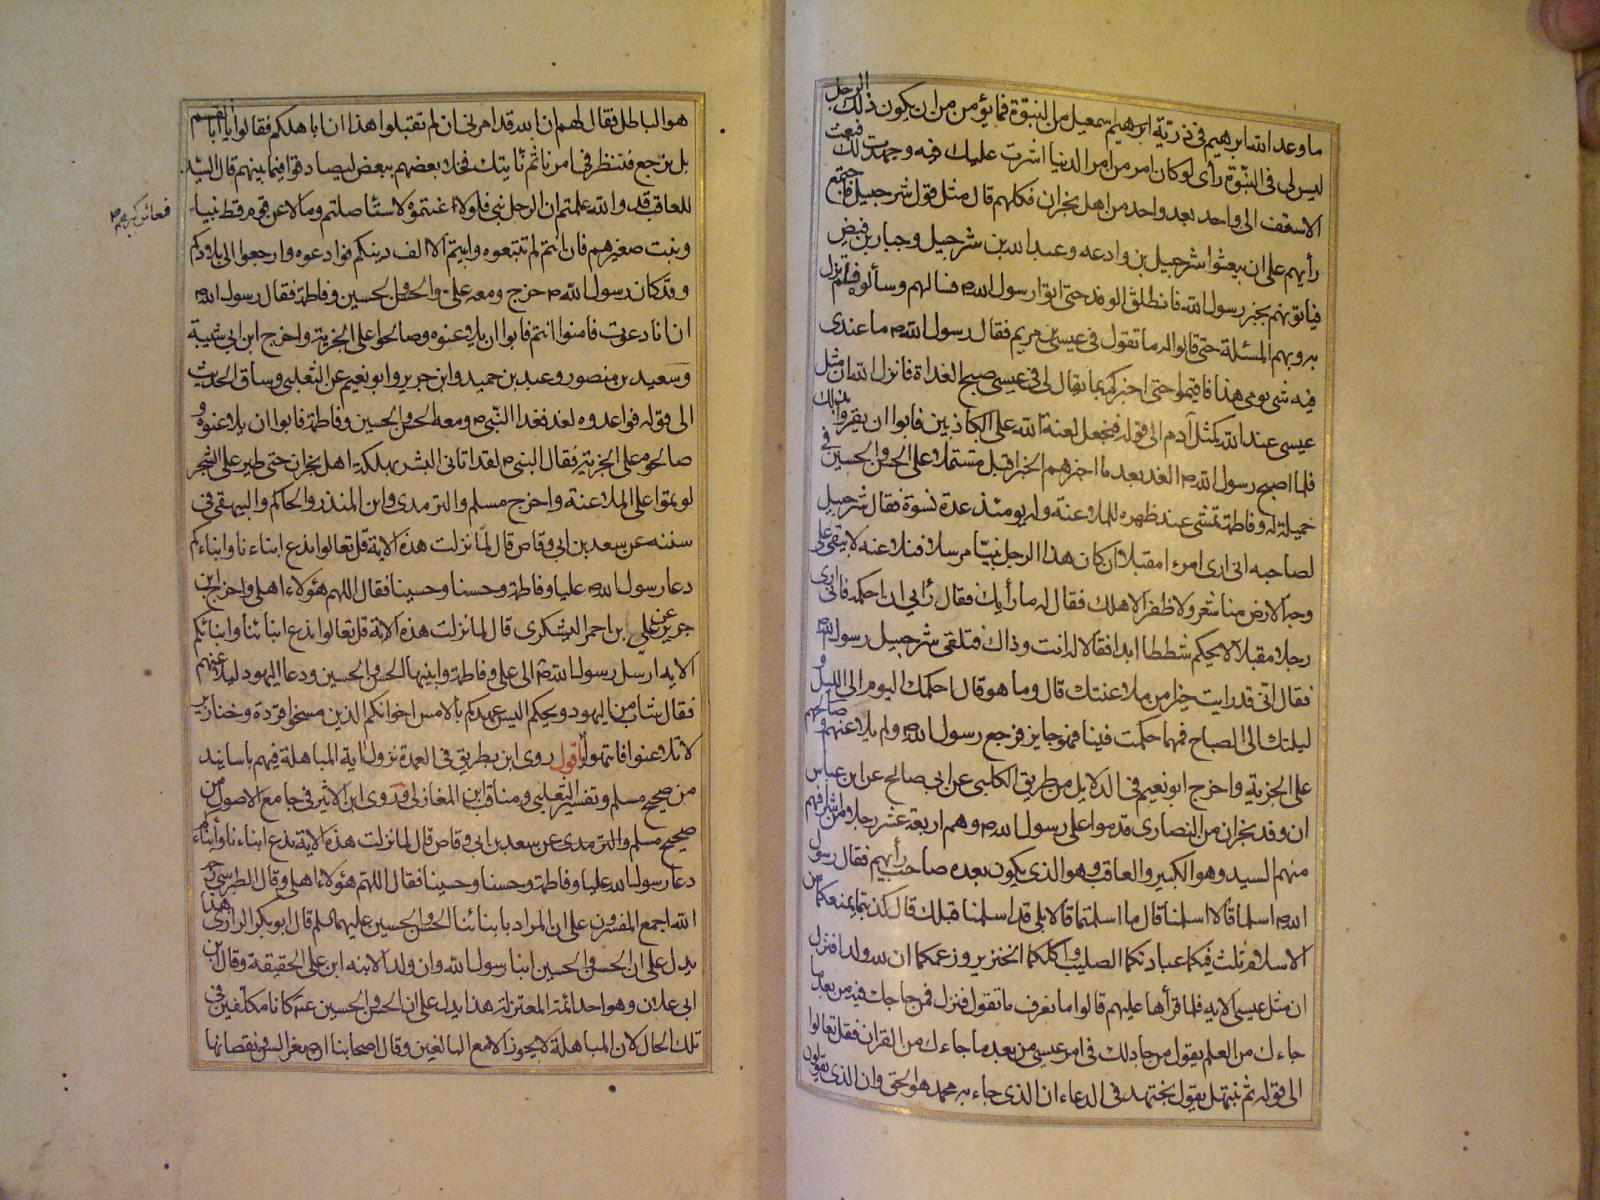 ما وعد الله ابرهيم فى ذرية ابرهيم اسمعيل من النبوة فما يؤمن من ان يكون ذلك الرجل
ليس لى فى النبوة رأى لو كان امر من امر الدنيا اشرت عليك فيه وجهدت لك فبعث
الاسقف الى واحد بعد واحد من اهل نجران فكلهم قال مثل قول شرحبيل فاجتمع
رأيهم على ان يبعثوا شرحبيل بن وادعه وعبد الله بن شرحبيل وجبار بن فيض
فياتونهم بخبر رسول الله فانطلق الوفد حتى اتوا رسول الله ص فسالهم وسألوه فلم تزل
به وبهم المسئلة حتى قالوا له ما تقول فى عيسى بن مريم فقال رسول الله ص ما عندى
فيه شى يومى هذا فاقيموا حتى اخبركم بما يقال لى فى عيسى صبح الغداة فانزل الله ان مثل
عيسى عند الله كمثل آدم الى قوله فنجعل لعنة الله على الكاذبين فابوا ان يقروا بذلك
فلما اصبح رسول الله ص الغد بعد ما اخبرهم الخبر اقبل مشتملا على الحسن والحسين فى
خميلة له وفاطمة تمشى عند ظهره للملاعنة وله يومئذ عدة نسوة فقال شرحبيل
لصاحبه انى ارى امرء مقبلا ان كان هذا الرجل نبيا مرسلا فنلاعنه لا يبقى على
وجه الارض منا شعر ولا ظفر الا هلك فقال له ما رأيك فقال رأيى ان احكمه فانى ارى
رجلا مقبلا لا يحكم شططا ابدا فقالا له انت وذاك فتلقى شرحبيل رسول الله ص
فقال انى قد رايت خيرا من ملاعنتك قال وما هو قال احكمك اليوم الى الليل و
ليلتك الى الصباح فمهما حكمت فينا فهو جايز فرجع رسول الله ص ولم يلاعنهم وصالحهم
على الجزية واخرج ابو نعيم فى الدلايل من طريق الكلبى عن ابى صالح عن ابن عباس
ان وفد نجران من النصارى قدموا على رسول الله ص وهم اربعة عشر رجلا من اشرافهم
منهم السيد وهو الكبير والعاقب وهو الذى يكون بعده صاحب رأيهم فقال رسول
الله ص اسلما قالا اسلمنا قال ما اسلمتما قالا بلى قد اسلمنا قبلك قال كذبتما يمنعكما من
الاسلام ثلث فيكما عبادتكما الصليب واكلكما الخنزير وزعمكما ان لله ولدا فنزل
ان مثل عيسى الاية فلما قرأها عليهم قالوا ما نعرف ما تقول فنزل فمن حاجك فيه من بعد ما
جاءك من العلم يقول من جادلك فى امر عيسى من بعد ما جاءك من القران فقل تعالوا
الى قوله ثم نبتهل يقول نجتهد فى الدعاء ان الذى جاء به محمد هو الحق وان الذى يقولون
هو الباطل فقال لهم ان الله قد امرنى ان لم تقبلوا هذا ان اباهلكم فقالوا يا ابا القسم
بل نرجع فننظر فى امرنا ثم نأتيك فخلا بعضهم ببعض ليصادقوا فيما بينهم قال السيد
للعاقب قد والله علمتم ان الرجل نبى فلو لاعنتموه لاستئاصلتم وما لاعن قوم قط نبيا
فعاش كبيرهم
ونبت صغيرهم فان انتم لم تتبعوه وابيتم الا الف دينكم فوادعوه وارجعوا الى بلادكم
وقد كان رسول الله ص خرج ومعه على والحسن والحسين وفاطمة فقال رسول الله ص
ان انا دعوت فامنوا انتم فابوا ان يلاعنوه وصالحوا على الجزية واخرج ابن ابى شيبة
وسعيد بن منصور وعبد بن حميد وابن جرير وابو نعيم عن الشعبى وساق الحديث
الى قوله فواعدوه لغد فغدا النبى ص ومعه الحسن والحسين وفاطمة فابوا ان يلاعنوه و
صالحوه على الجزية فقال النبى ص لقد اتانى البشر بهلكة اهل نجران حتى طير على الشجر
لو تموا على الملاعنة واخرج مسلم والترمدى وابن المنذر والحاكم والبيهقى فى
سننه عن سعد بن ابى وقاص قال لما نزلت هذه الاية قل تعالوا ندع ابناءنا وابناءكم
دعا رسول الله ص عليا وفاطمة وحسنا وحسينا فقال اللهم هؤلاء اهلى واخرج ابن
جرير عن على بن احمر اليشكرى قال لما نزلت هذه الاية قل تعالوا ندع ابنائنا وابنائكم
الاية ارسل رسول الله ص الى على وفاطمة وابنيهما الحسن والحسين ودعا اليهود ليلاعنهم
فقال شاب من اليهود ويحكم اليس عهدكم بالامس اخوانكم الذين مسخوا قردة وخنازير
لا تلاعنوا فانتهوا اقول روى ابن بطريق فى العمدة نزول اية المباهلة فيهم باسانيد
من صحيح مسلم وتفسير الثعلبى ومناقب ابن المغازلى وروى ابن الاثير فى جامع الاصول من
صحيح مسلم والترمدى عن سعد بن ابى وقاص قال لما نزلت هذه الاية ندع ابناءنا وأبناءكم
دعا رسول الله عليا وفاطمة وحسنا وحسينا فقال اللهم هؤلاء اهلى وقال الطبرسى رحمه
الله اجمع المفسرون على ان المراد بابنائنا الحسن والحسين عليهما السلم قال ابو بكر الرازى هذا
يدل على ان الحسن والحسين ابنا رسول الله وان ولد الابنة ابن على الحقيقة وقال ابن
ابى علان وهو احد ائمة المعتزلة هذا يدل على ان الحسن والحسين كانا مكلفين فى
تلك الحال لان المباهلة لا يجوز الا مع البالغين وقال اصحابنا ان صغر السن ونقصانها